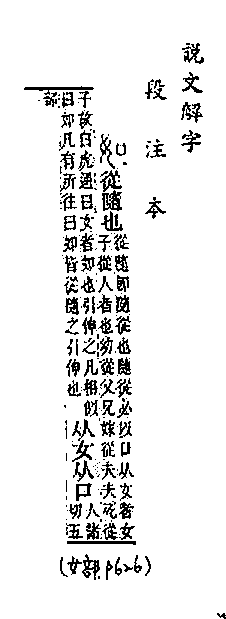 說文解字
段注本
從隨也
從隨即隨從也隨從必以口从女者女
子從人者也幼從父兄嫁從夫夫死從
子故白虎通曰女者如也引伸之凡相似
曰如凡有所往曰如皆從隨之引伸也
从女从口
人諸
切五
部
(女部P626)